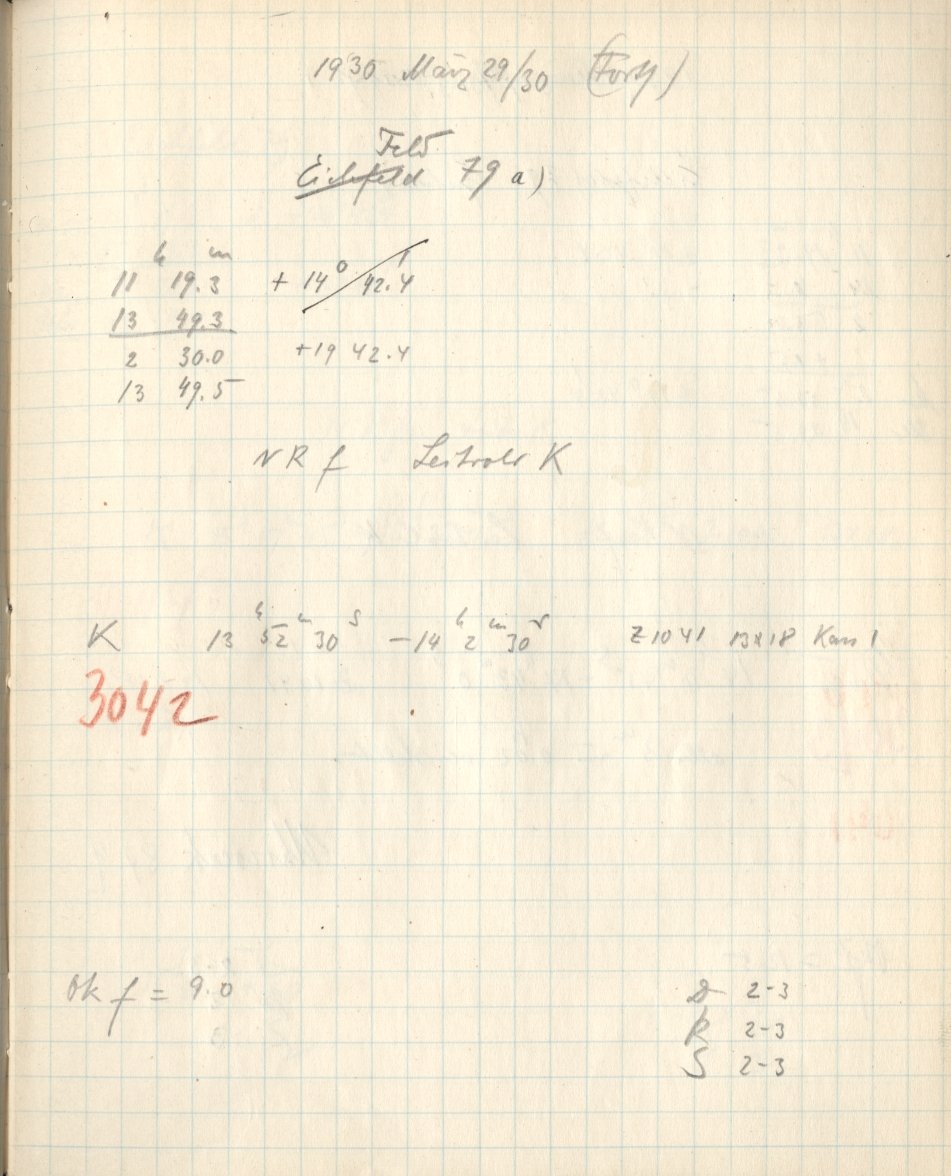 1930 März 29/30 (Forts)
Feld
Eichfeld 79 a)
h m
11 19.3 + 14° 42.4'
13 49.3
2 30.0 +19 42.4
13 49.5
N R f Leitrohr K
K 13h 52m 30s - 14h 2m 30s Z 1041 13x18 Kass 1
3042
Ok f = 9.0
D 2-3
R 2-3
S 2-3